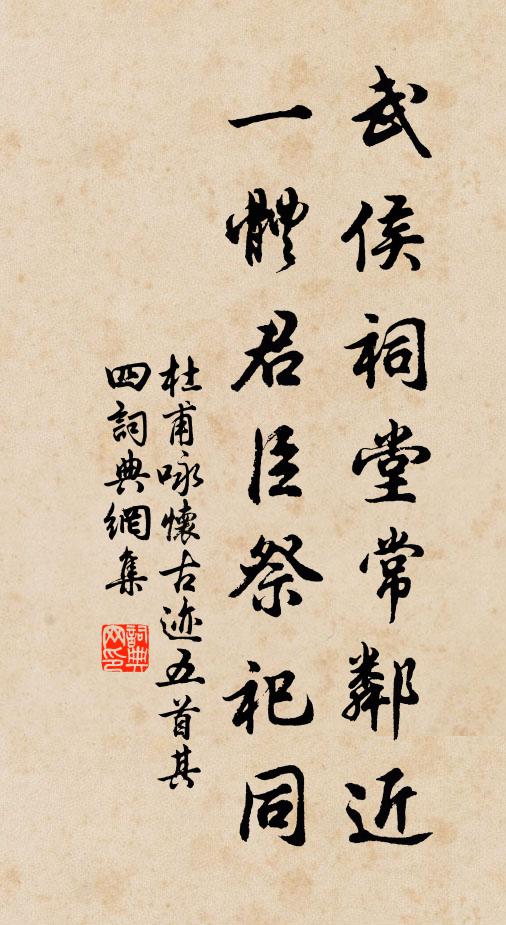 武侯祠堂常鄰近
一體君臣祭祀同
杜甫咏懷古迹五首其
四詞典網集
詞典
网印